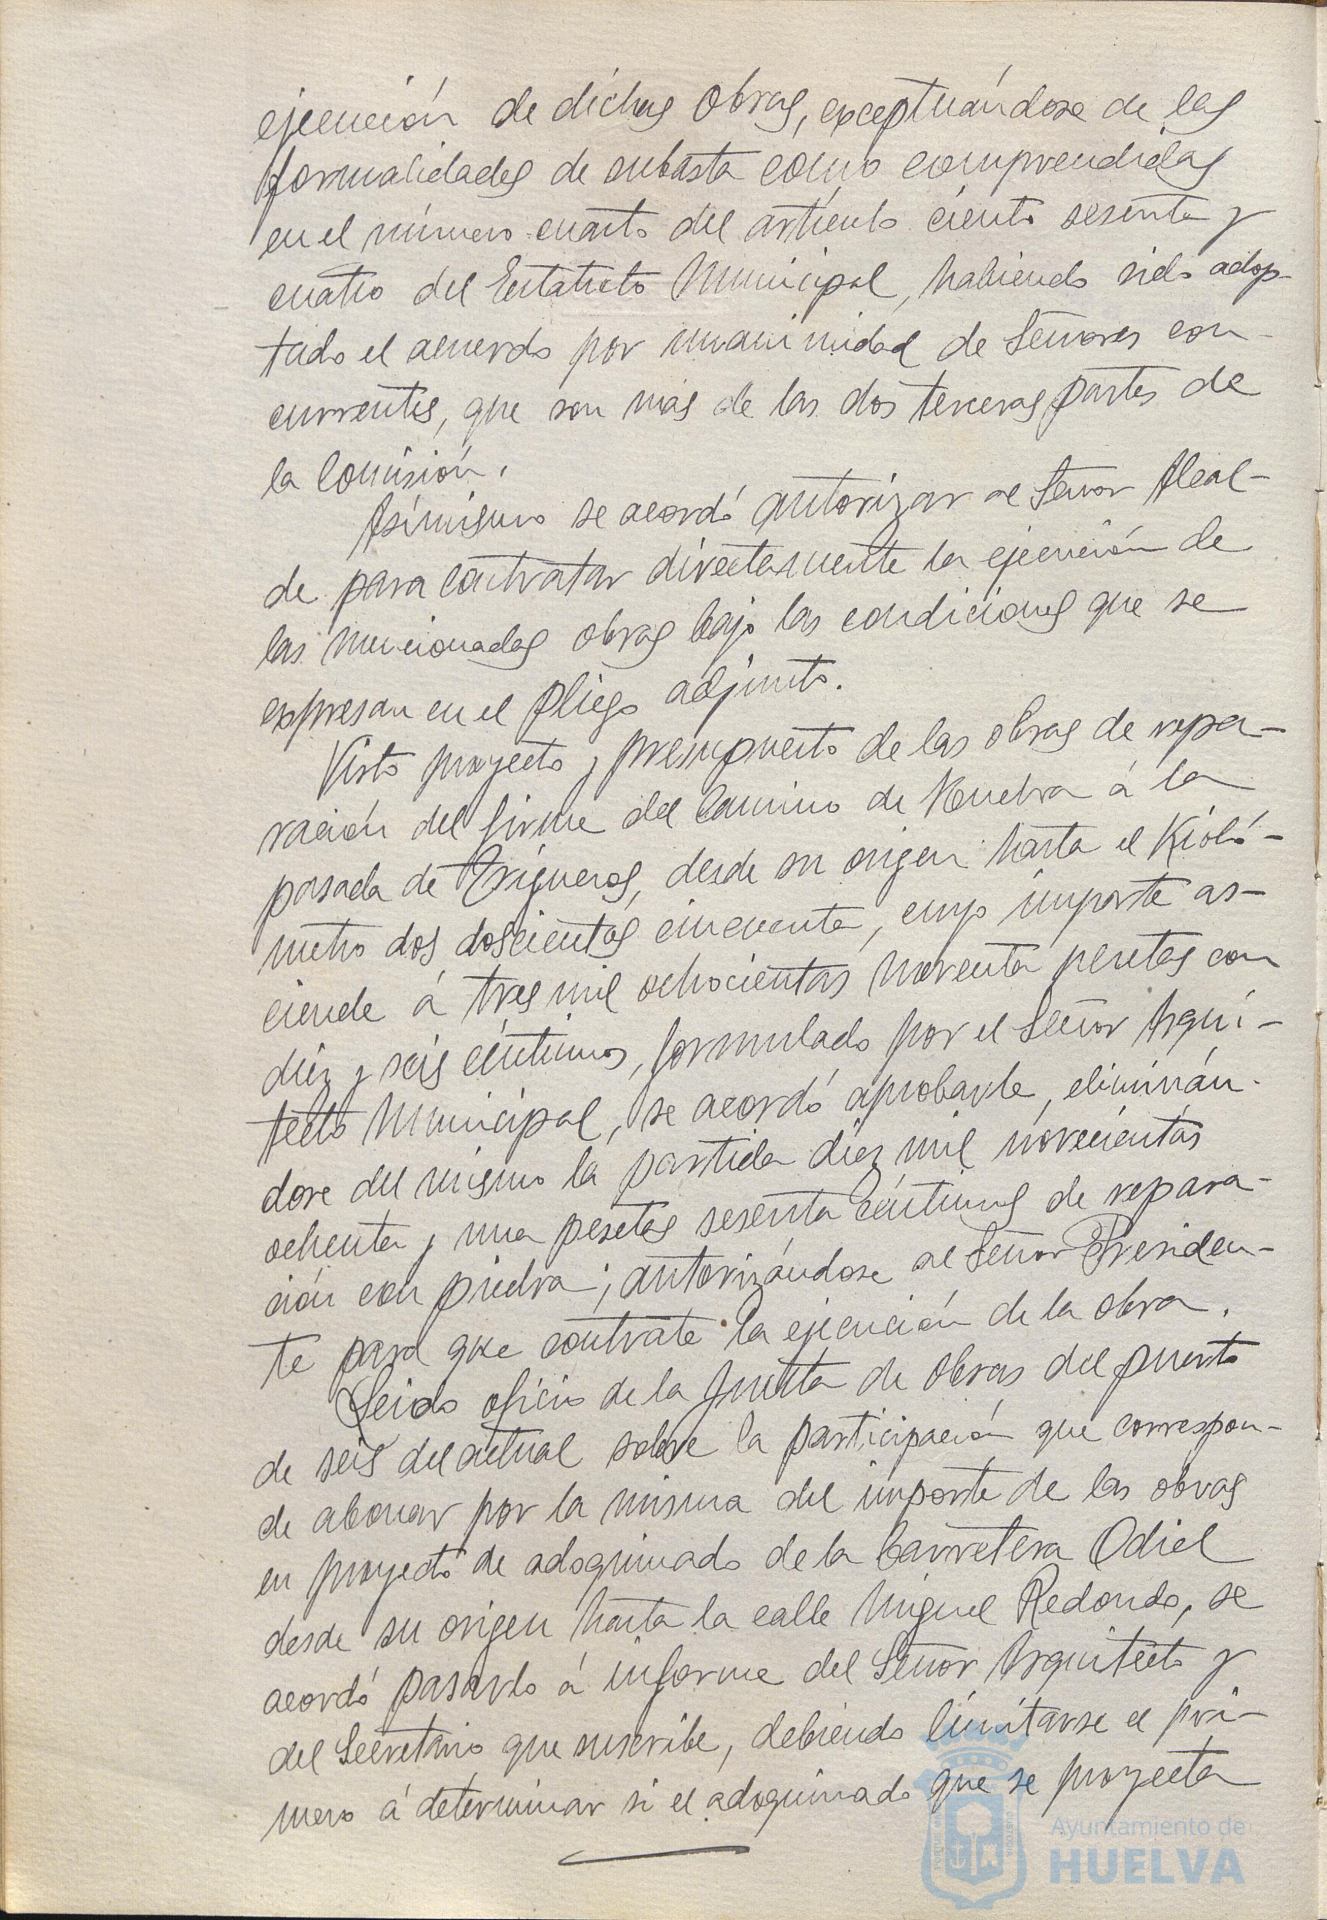 ejecución de dichas obras, exceptuándose de las
formalidades de subasta como comprendidas
en el número cuarto del artículo ciento sesenta y
cuatro del Estatuto Municipal, habiendo sido adop-
tado el acuerdo por unanimidad de Señores con-
currentes, que son más de las dos terceras partes de
la Comisión.
Asimismo se acordó autorizar al Señor Alcal-
de para contratar directamente la ejecución de
las mencionadas obras bajo las condiciones que se
expresan en el pliego adjunto.
Visto proyecto y presupuesto de las obras de repa-
ración del firme del Camino de Huelva á la
pasada de Trigueros, desde su origen hasta el Kiló-
metro dos doscientos cincuenta, cuyo importe as-
ciende á tres mil ochocientas noventa pesetas con
diez y seis céntimos, formulado por el Señor Arqui-
tecto Municipal, se acordó aprobarle, eliminán-
dose del mismo la partida diez mil novecientas
ochenta y una pesetas sesenta céntimos de repara-
ción con piedra; autorizándose al Señor Presiden-
te para que contrate la ejecución de la obra.
Leido oficio de la Junta de Obras del puerto
de seis del actual sobre la participación que correspon-
de abonar por la misma del importe de las obras
en proyecto de adoquinado de la Carretera Odiel
desde su origen hasta la calle Miguel Redondo, se
acordó pasarlo á informe del Señor Arquitecto y
del Secretario que suscribe, debiendo limitarse el pri-
mero á determinar si el adoquinado que se proyecta
Ayuntamiento de
HUELVA